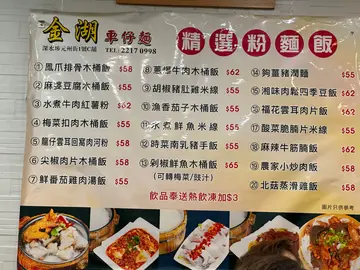 金湖 車仔麵
深水埗元州街 號C舖 TEL: 2217 0998
精選粉麵飯
① 鳳爪排骨木桶飯 $58
② 麻婆豆腐木桶飯 $55
③ 水煮牛肉紅薯粉 $62
④ 梅菜扣肉木桶飯 $55
⑤ 龍仔雲耳回窩肉河粉 $58
⑥ 尖椒肉片木桶飯 $58
⑦ 鮮番茄雞肉湯飯 $55
⑧ 蔥爆牛肉木桶飯 $62
⑨ 胡椒豬肚雞米線 $55
⑩ 漁香茄子木桶飯 $55
⑪ 水煮鮮魚米線 $55
⑫ 時菜南乳豬手飯 $55
⑬ 剁椒鮮魚木桶飯 $62
(可轉梅菜/豉汁)
⑭ 豬潤麵 $55
⑮ 湘味肉鬆四季豆飯 $62
⑯ 福花雲耳肉片飯 $62
⑰ 酸菜脆腩片米線 $55
⑱ 麻辣牛筋腩飯 $60
⑲ 農家小炒肉飯 $58
⑳ 北菇蒸滑雞飯 $58
飲品奉送熱飲凍加$3
圖片只供參考